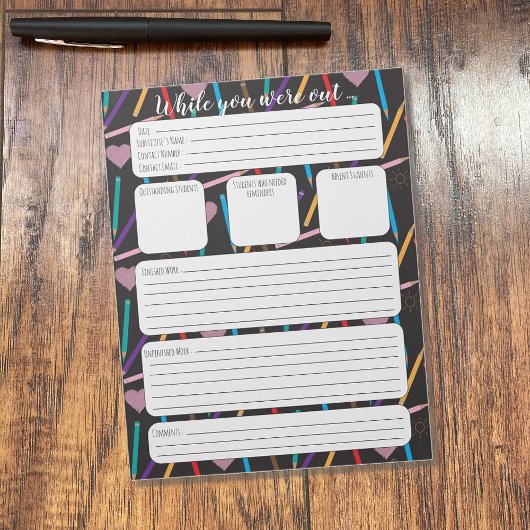 While you were out ...
Date :
Substitute's Name :
Contact Number :
Contact Email :
Outstanding Students
Students who needed
reminders
Absent Students
Finished Work :
Unfinished Work :
Comments :